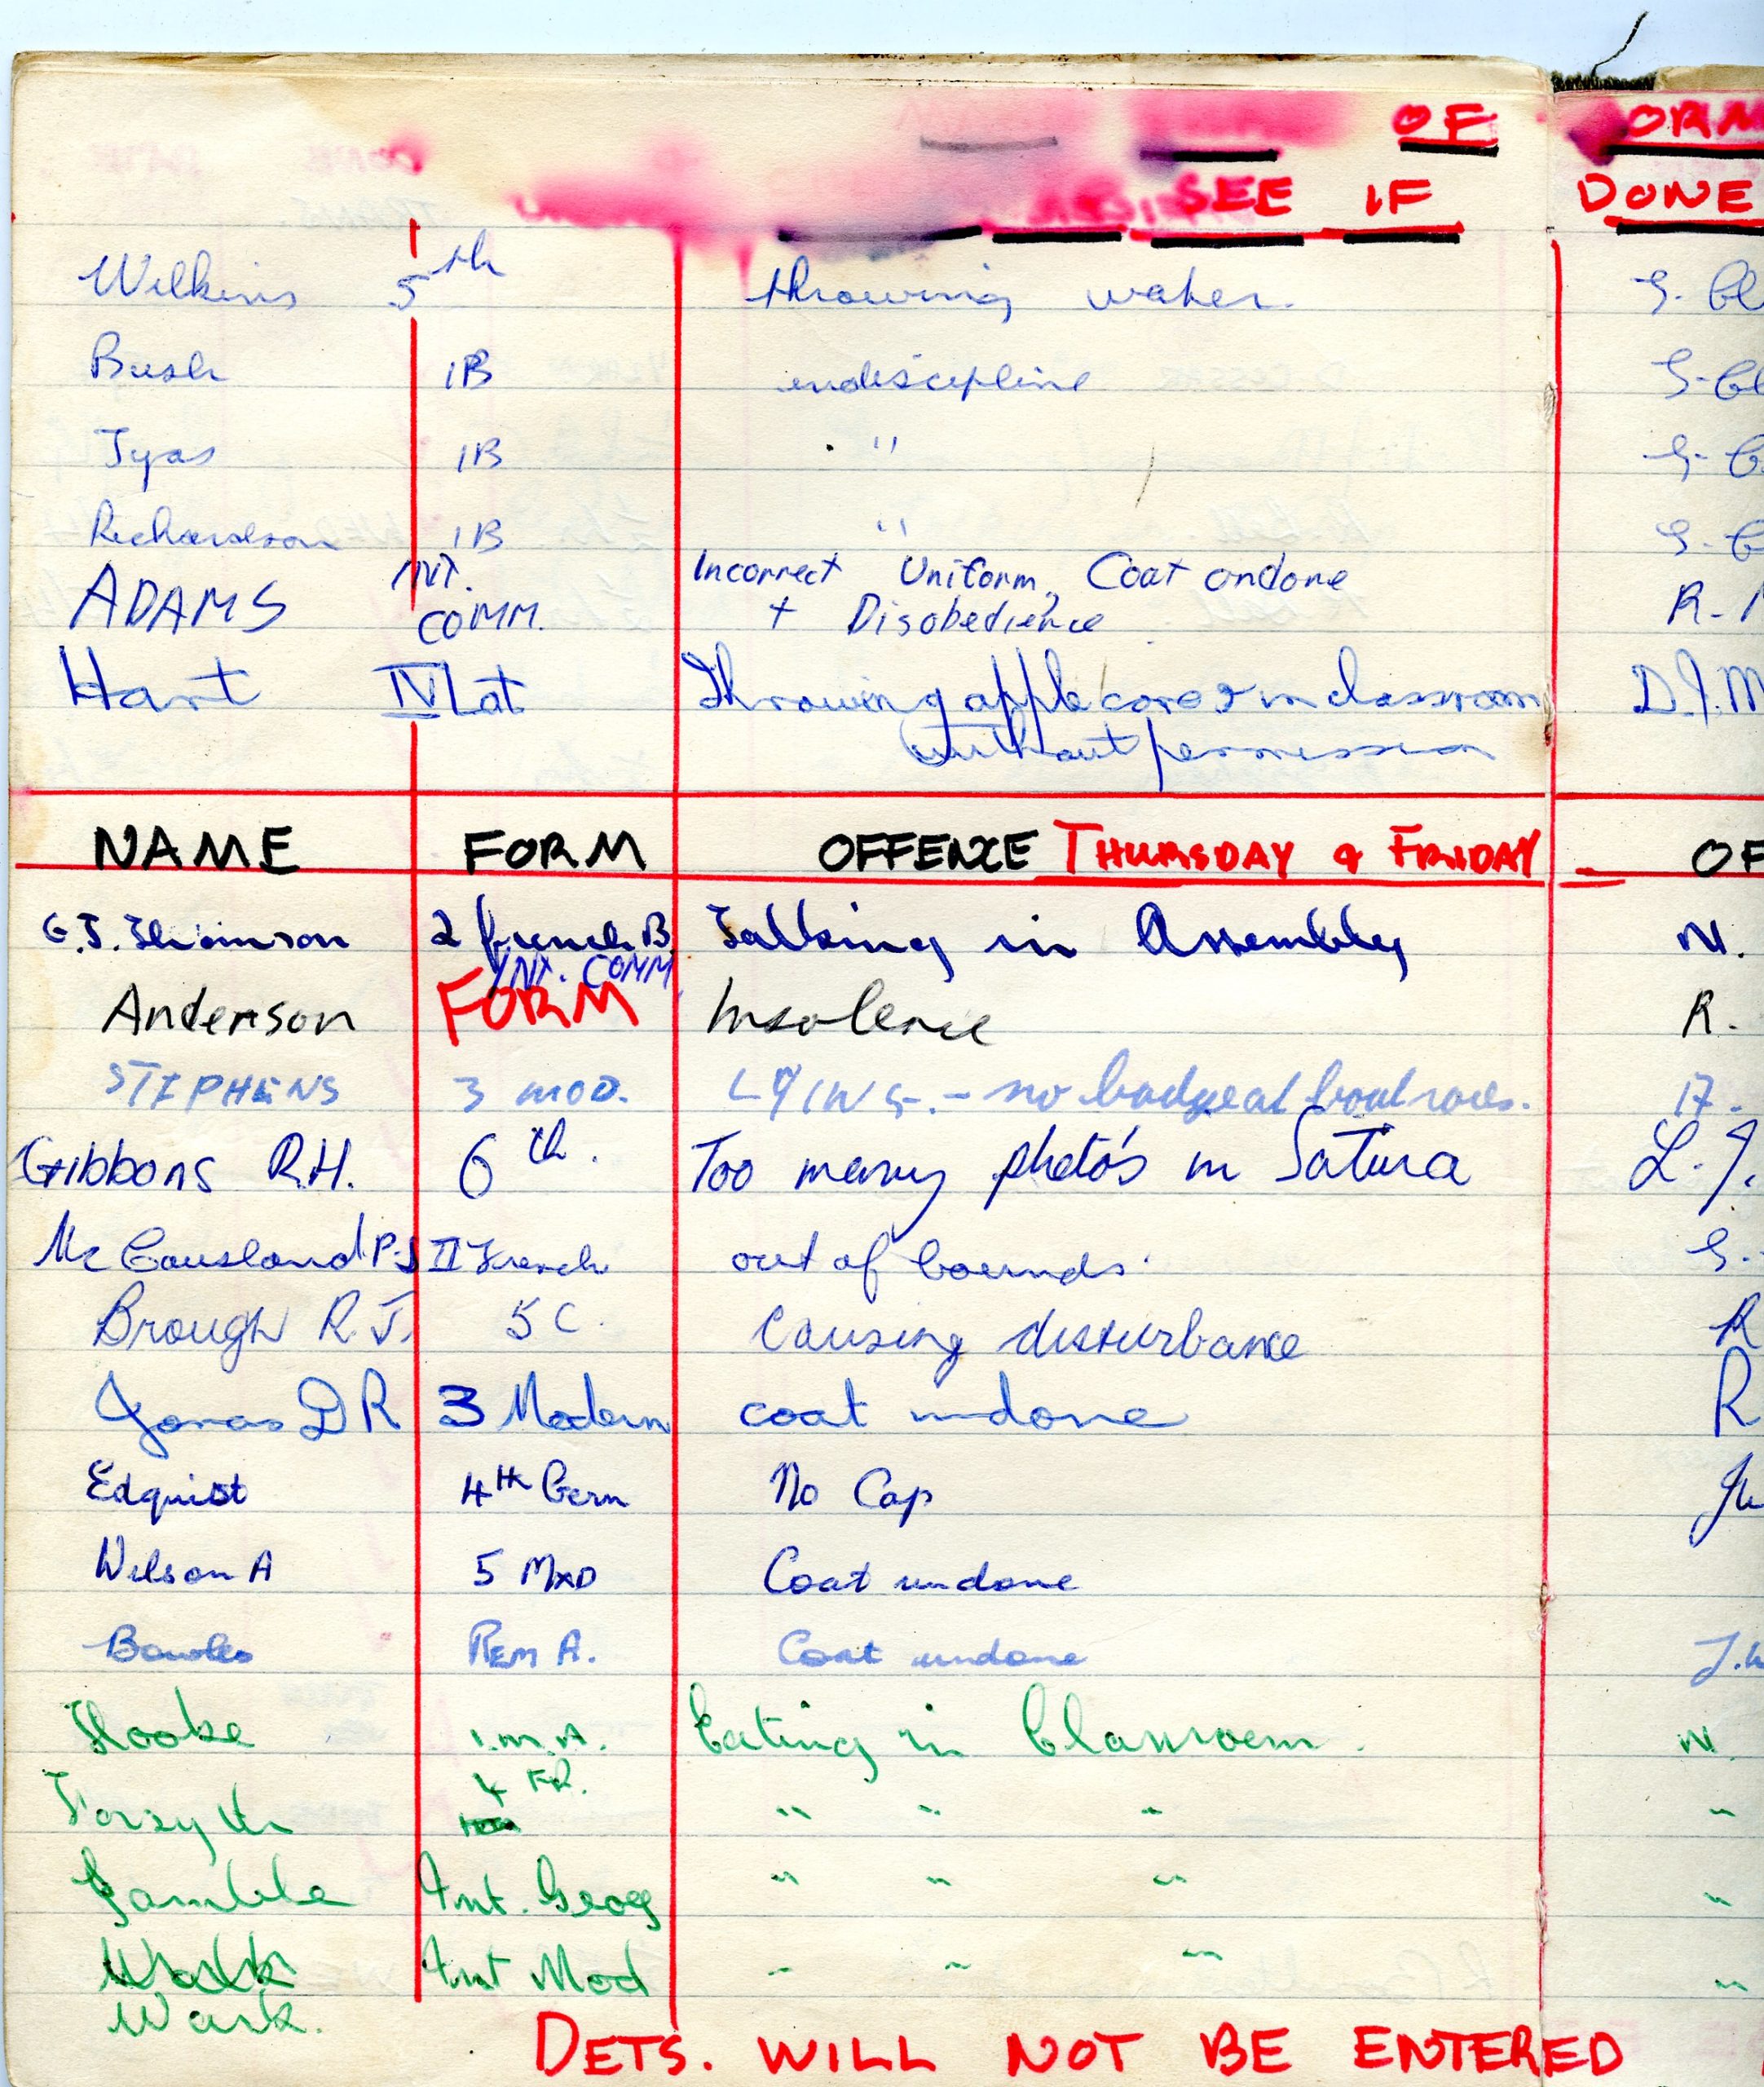 OF ORM
SEE IF DONE
Wilkins 5th throwing water. G. Cl
Bush 1B indiscipline G. Cl
Tyas 1B " G. C
Richardson 1B " G. C
ADAMS INT. COMM. Incorrect Uniform, Coat ondone R.
+ Disobedience
Hart IV Lat Throwing apple cores in classroom D.J.M
without permission
NAME FORM OFFENCE THURSDAY & FRIDAY OF
G.J. Thomson 2 french B Talking in Assembly N.
INT. COMM.
Anderson FORM Insolence R.
STEPHENS 3 MOD. LYING. - no badge at boat races.
Gibbons R.H. 6th. Too many photo's in Satura L.J.
McCausland P.J II French out of bounds. G.
Brough R.J. 5C. Causing disturbance R
Jonas D R 3 Modern coat undone R
Edquist 4th Germ No Cap
Wilson A 5 MXD Coat undone
Bowles REM A. Coat undone J.
Hooke 1.M.A. Eating in Classroom. N.
4 FR.
Forsyth " " " "
Gamble Int. Geog " " " "
Int Mod " " " "
Wark.
DETS. WILL NOT BE ENTERED